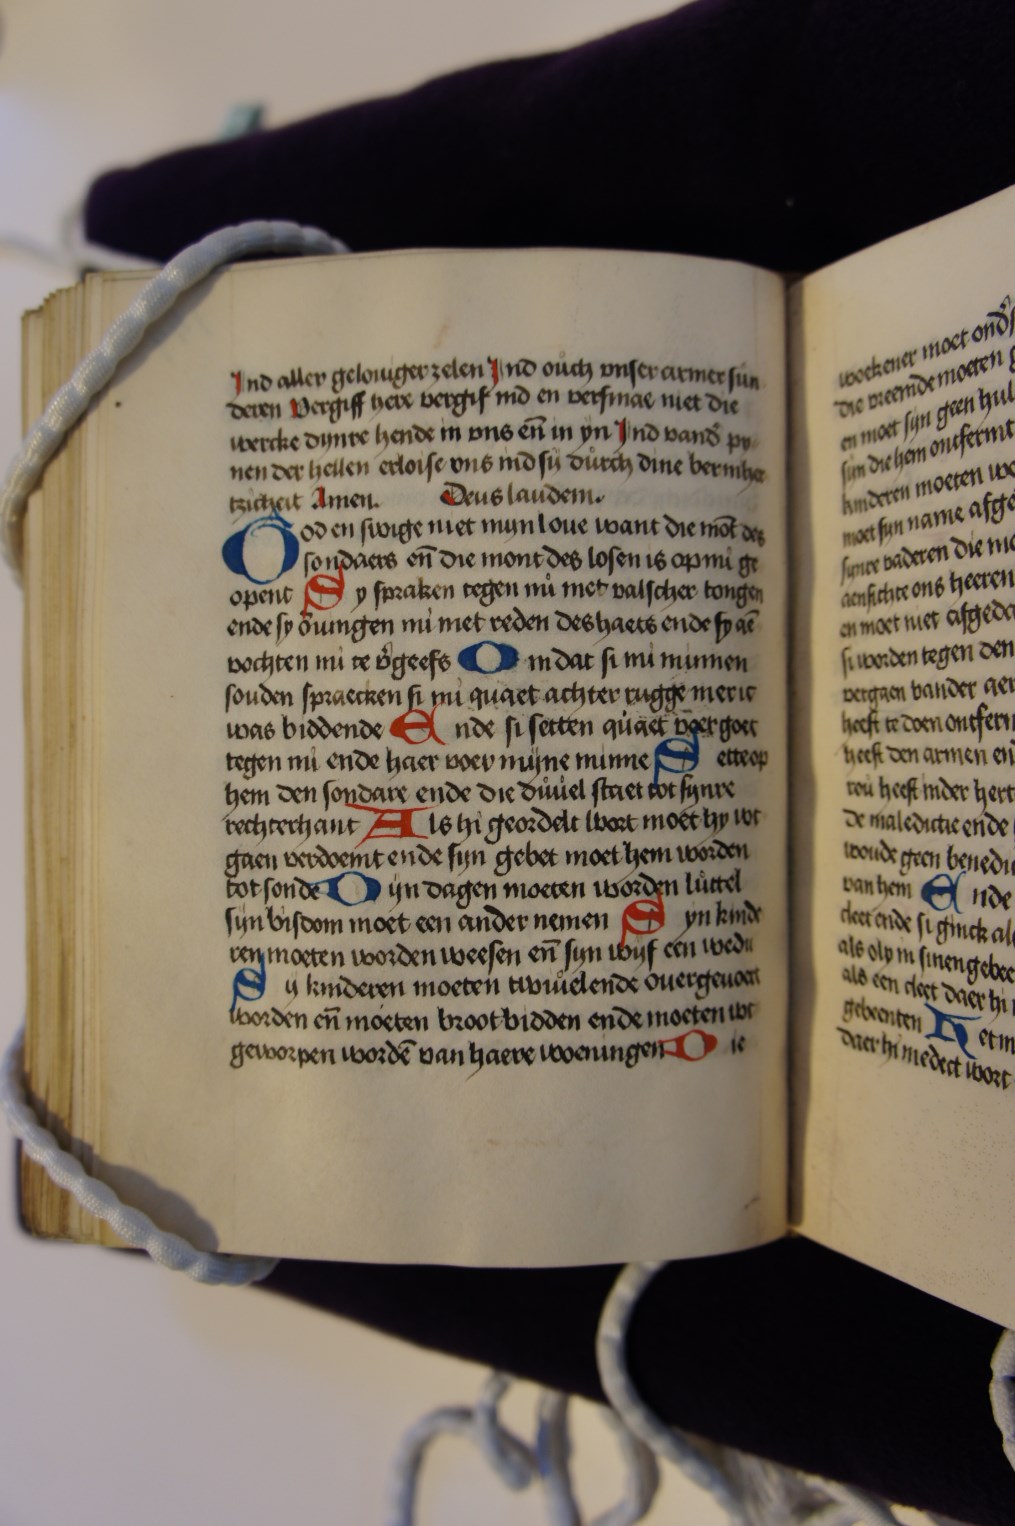 Ind aller gelouiger zelen Ind oůch vnser armer sun
deren Vergiff here vergif ind en versmae niet die
wercke dynre hende in vns en̄ in yn Ind vand̉ py
nen der hellen erloise vns ind sij důrch dine bermher
tzicheit Amen. Deus laudem.
God en swige niet mijn loue want die mōt des
sondaers en̄ die mont des losen is op mi ge
opent Sy spraken tegen mi met valscher tongen
ende sy ōuingen mi met reden des haets ende sy aē
vochten mi te v̉geefs Om dat si mi minnen
souden spraecken si mi quaet achter rugge mer ic
was biddende Ende si setten quaet voer goet
tegen mi ende haet voer mijne minne Sette op
hem den sondare ende die důůel staet tot synre
rechterhant Als hi geordelt wort moet hy wt
gaen verdoemt ende sijn gebet moet hem worden
tot sonde Sijn dagen moeten worden lůttel
sijn bisdom moet een ander nemen Syn kinde
ren moeten worden weesen en̄ sijn wijf een wedu
Sij kinderen moeten twiuelende ouergeuoert
worden en̄ moeten broot bidden ende moeten wt
geworpen wordē van haere wooningen Die
woekener moet ond̉s
die vreemde moeten
en moet sijn geen hul
sijn die hem ontfermt
kinderen moeten
moet sijn name afge
synre vaderen die
aensichte ons heeren
en moet niet afgeda
si worden tegen den
vergaen vander aer
heeft te doen ontferm
heeft den armen en̄
rou heeft inder hert
De maledictie ende
woude geen benedi
van hem Ende
cleet ende si ginck al
als oly in sinen gebee
als een cleet daer hi
gebeenten Het m
daer hi mede ct wort